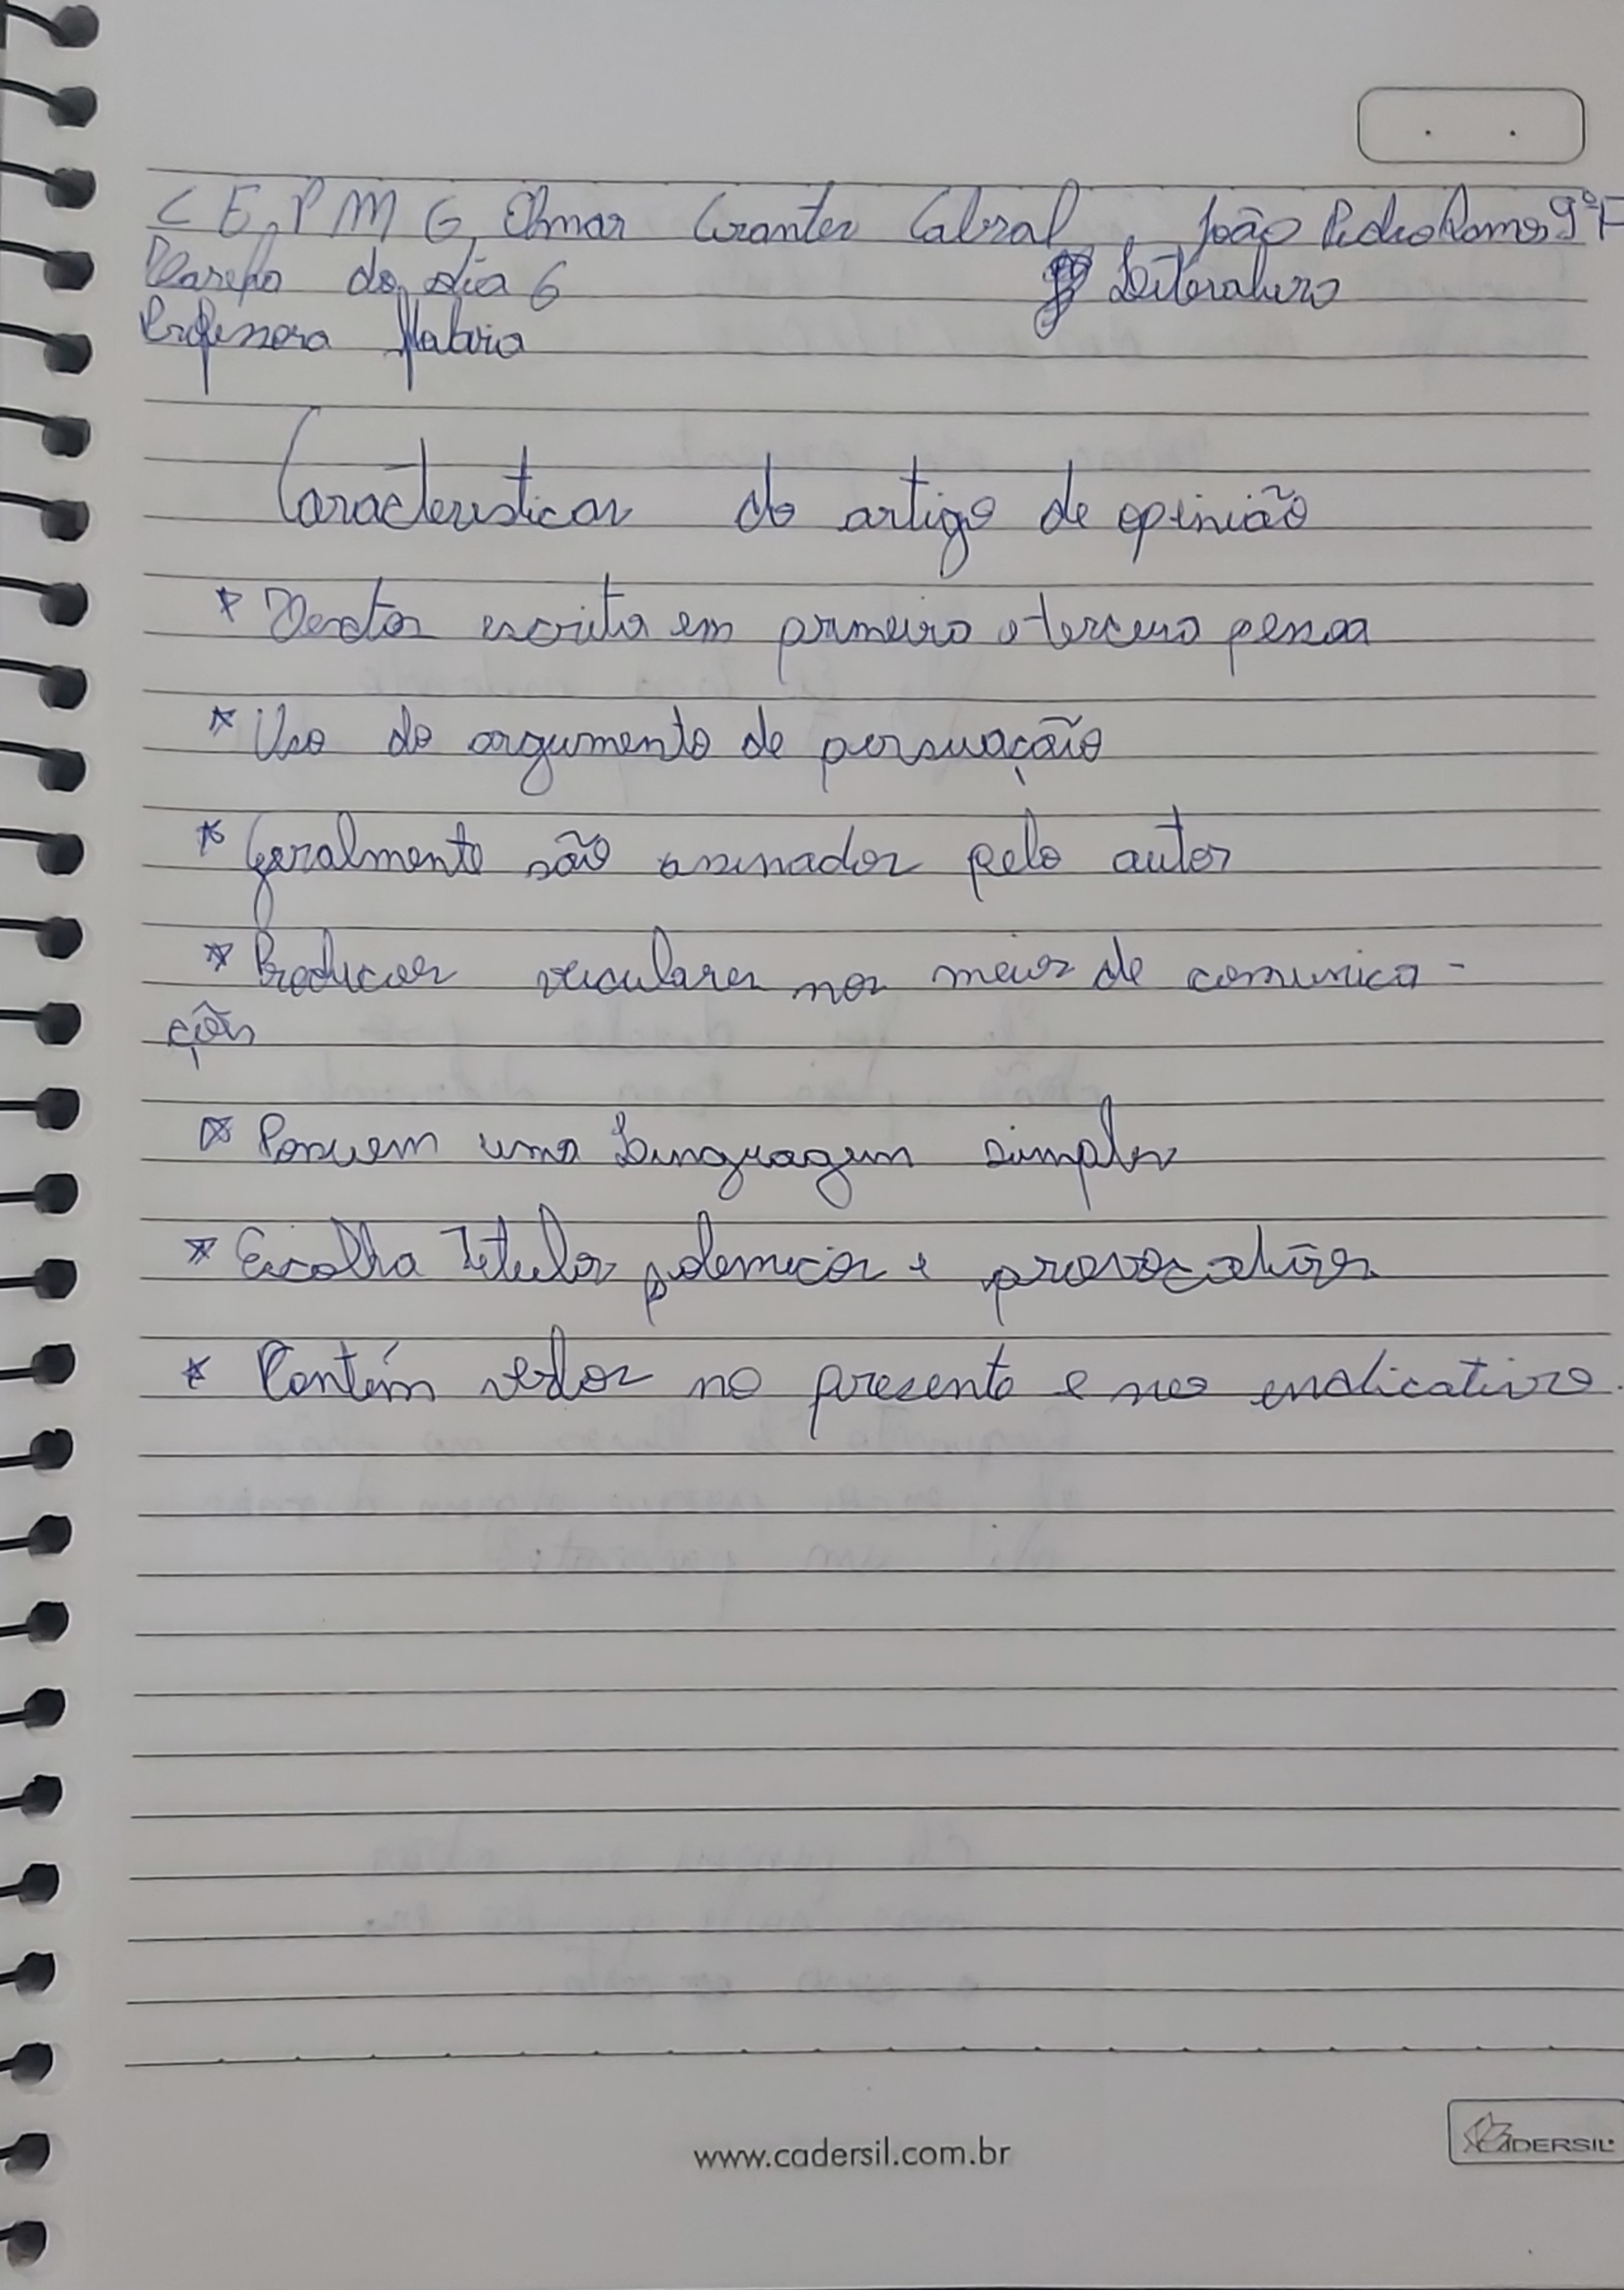 C E, P M G, Elmar Arantes Cabral, João Pedro Ramos 9º F
Tarefa do dia 6 Literatura
Professora Flabia
Caracteristicas do artigo de opinião
* Textos escrito em primeiro e terceiro pessoa
* Uso do argumento de persuação
* Geralmente são assinados pelo autor
* Producoes veiculares nos meios de comunica -
ções
* Possuem uma Linguagem simples
* Escolha Titulos polemicos e provocativos
* Contém verbos no presente e no indicativo.
www.cadersil.com.br
CADERSIL